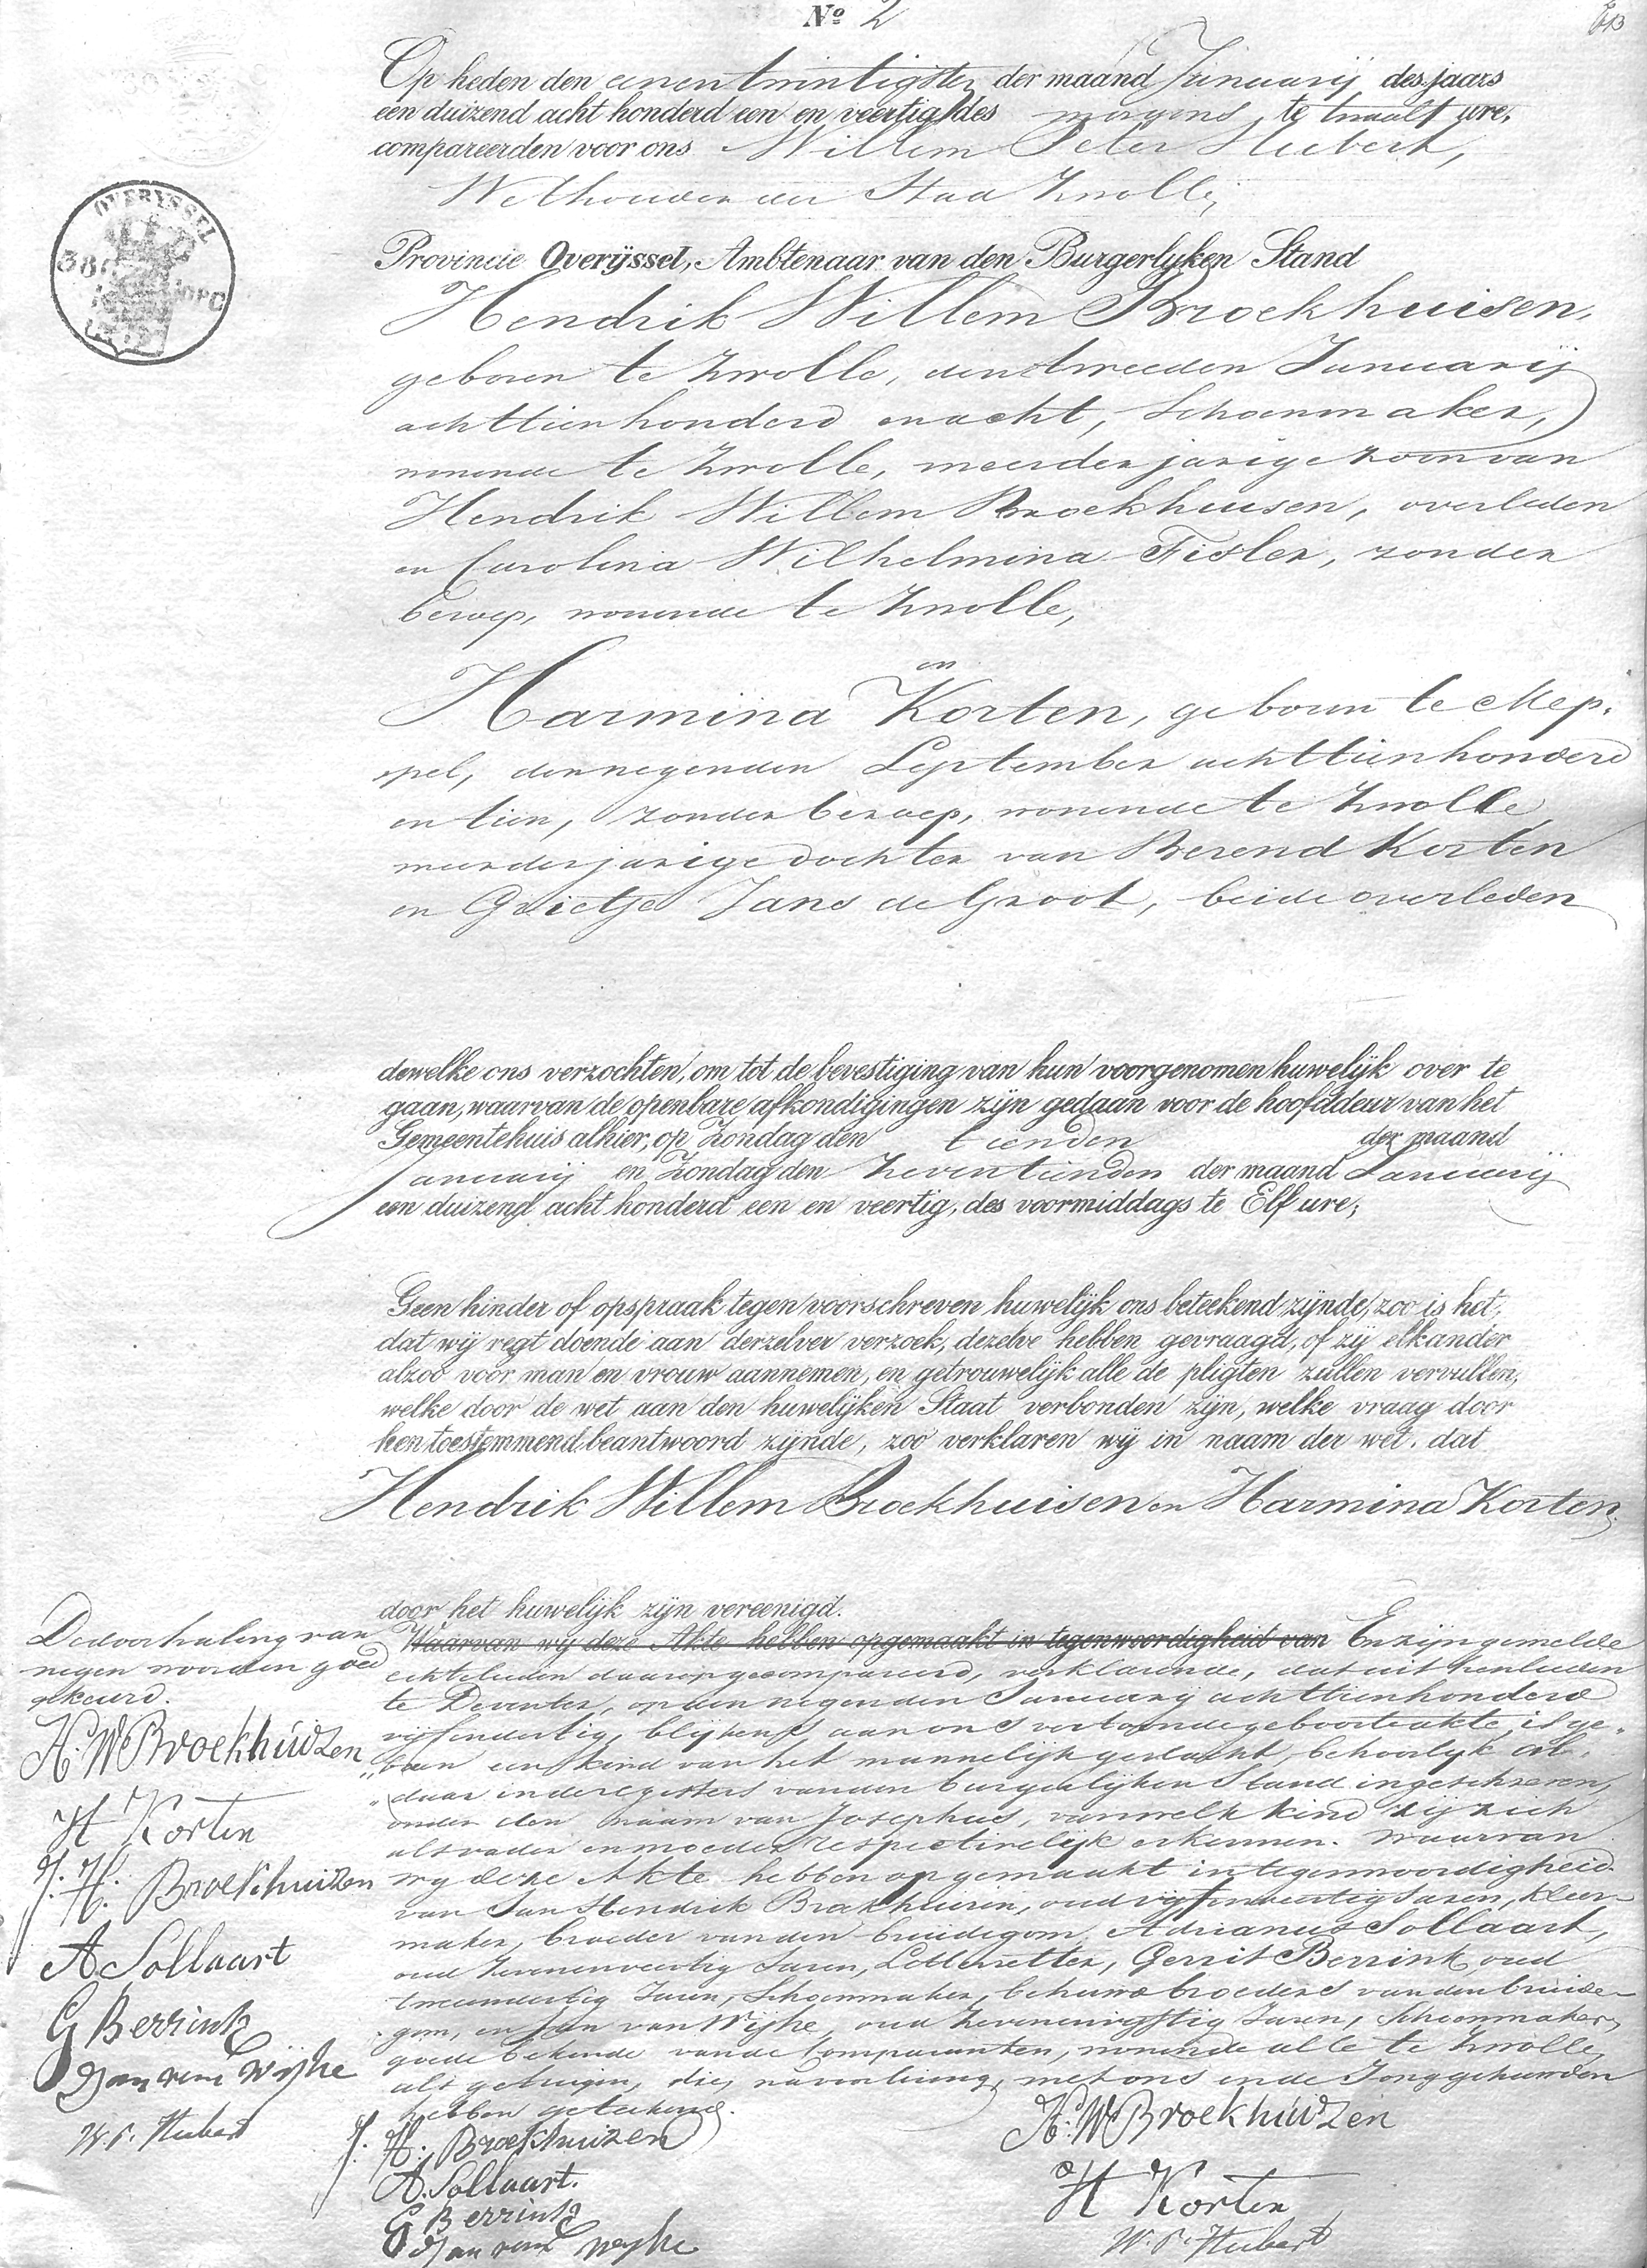 Nº 2
Op heden den eenentwintigsten der maand Januarij des jaars
een duizend acht honderd een en veertig des morgens te twaalf ure,
compareerden voor ons Willem Peter Hubert,
Wethouder der Stad Zwolle,
OVERYSSEL
38
OPC
Provincie Overijssel, Ambtenaar van den Burgerlyken Stand
Hendrik Willem Broekhuisen,
geboren te Zwolle, den tweeden Januarij
achttienhonderd en acht, Schoenmaker,
wonende te Zwolle, meerderjarige zoon van
Hendrik Willem Broekhuisen, overleden
en Carolina Wilhelmina Fisler, zonder
beroep, wonende te Zwolle,
en
Harmina Korten, geboren te Mep,
pel, den negenden September achttienhonderd
en tien, zonder beroep, wonende te Zwolle
meerderjarige dochter van Berend Korten
en Grietje Jans de Groot, beide overleden
dewelke ons verzochten, om tot de bevestiging van hun voorgenomen huwelijk over te
gaan, waarvan de openbare afkondigingen zijn gedaan voor de hoofddeur van het
Gemeentehuis alhier, op Zondag den tienden der maand
Januarij en Zondag den Zeventienden der maand Januarij
een duizend acht honderd een en veertig, des voormiddags te Elf ure;
Geen hinder of opspraak tegen voorschreven huwelijk ons beteekend zijnde, zoo is het,
dat wij regt doende aan derzelver verzoek, dezelve hebben gevraagd, of zij elkander
alzoo voor man en vrouw aannemen, en getrouwelijk alle de pligten zullen vervullen,
welke door de wet aan den huwelijken Staat verbonden zijn, welke vraag door
hen toestemmend beantwoord zijnde, zoo verklaren wij in naam der wet, dat
Hendrik Willem Broekhuisen en Harmina Korten,
door het huwelijk zijn vereenigd.
Waarvan wij deze Akte hebben opgemaakt in tegenwoordigheid van En zijn gemelde
echtelieden daarop gecompareerd, verklarende, dat uit henlieden
te Deventer, op den negenden Januarij achttienhonderd
vijfendertig, blijkens aan ons vertoonde geboorteakte, is ge„
„boren een kind van het mannelijk geslacht, behoorlijk al„
„daar in de registers van den burgerlijken Stand ingeschreven,
onder den naam van Josephus, van welk kind zij zich
als vader en moeder respectivelijk erkennen. Waarvan
wij deze Akte hebben opgemaakt in tegenwoordigheid
van Jan Hendrik Broekhuisen, oud vijfenveertig Jaren, Kleer-
maker, broeder van den bruidegom, Adrianus Sollaart,
oud zevenenveertig Jaren, Letterzetter, Gerrit Berrink, oud
tweeendertig Jaren, Schoenmaker, behuwdbroeders van den bruide-
gom, en Jan van Wijhe, oud zevenenvijftig Jaren, Schoenmaker,
goede bekende van de Comparanten, wonende alle te Zwolle,
als getuigen, die, na voorlezing, met ons en de Jonggehuwden
hebben geteekend.
De doorhaling van
negen woorden goed
gekeurd.
H. W. Broekhuizen
H Korten
J. H. Broekhuizen
A Sollaart
G Berrink
Jan van Wijhe
W. P. Hubert
J. H. Broekhuizen
A. Sollaart.
G Berrink
Jan van Weyhe
H. W. Broekhuizen
H Korten
W. P. Hubert